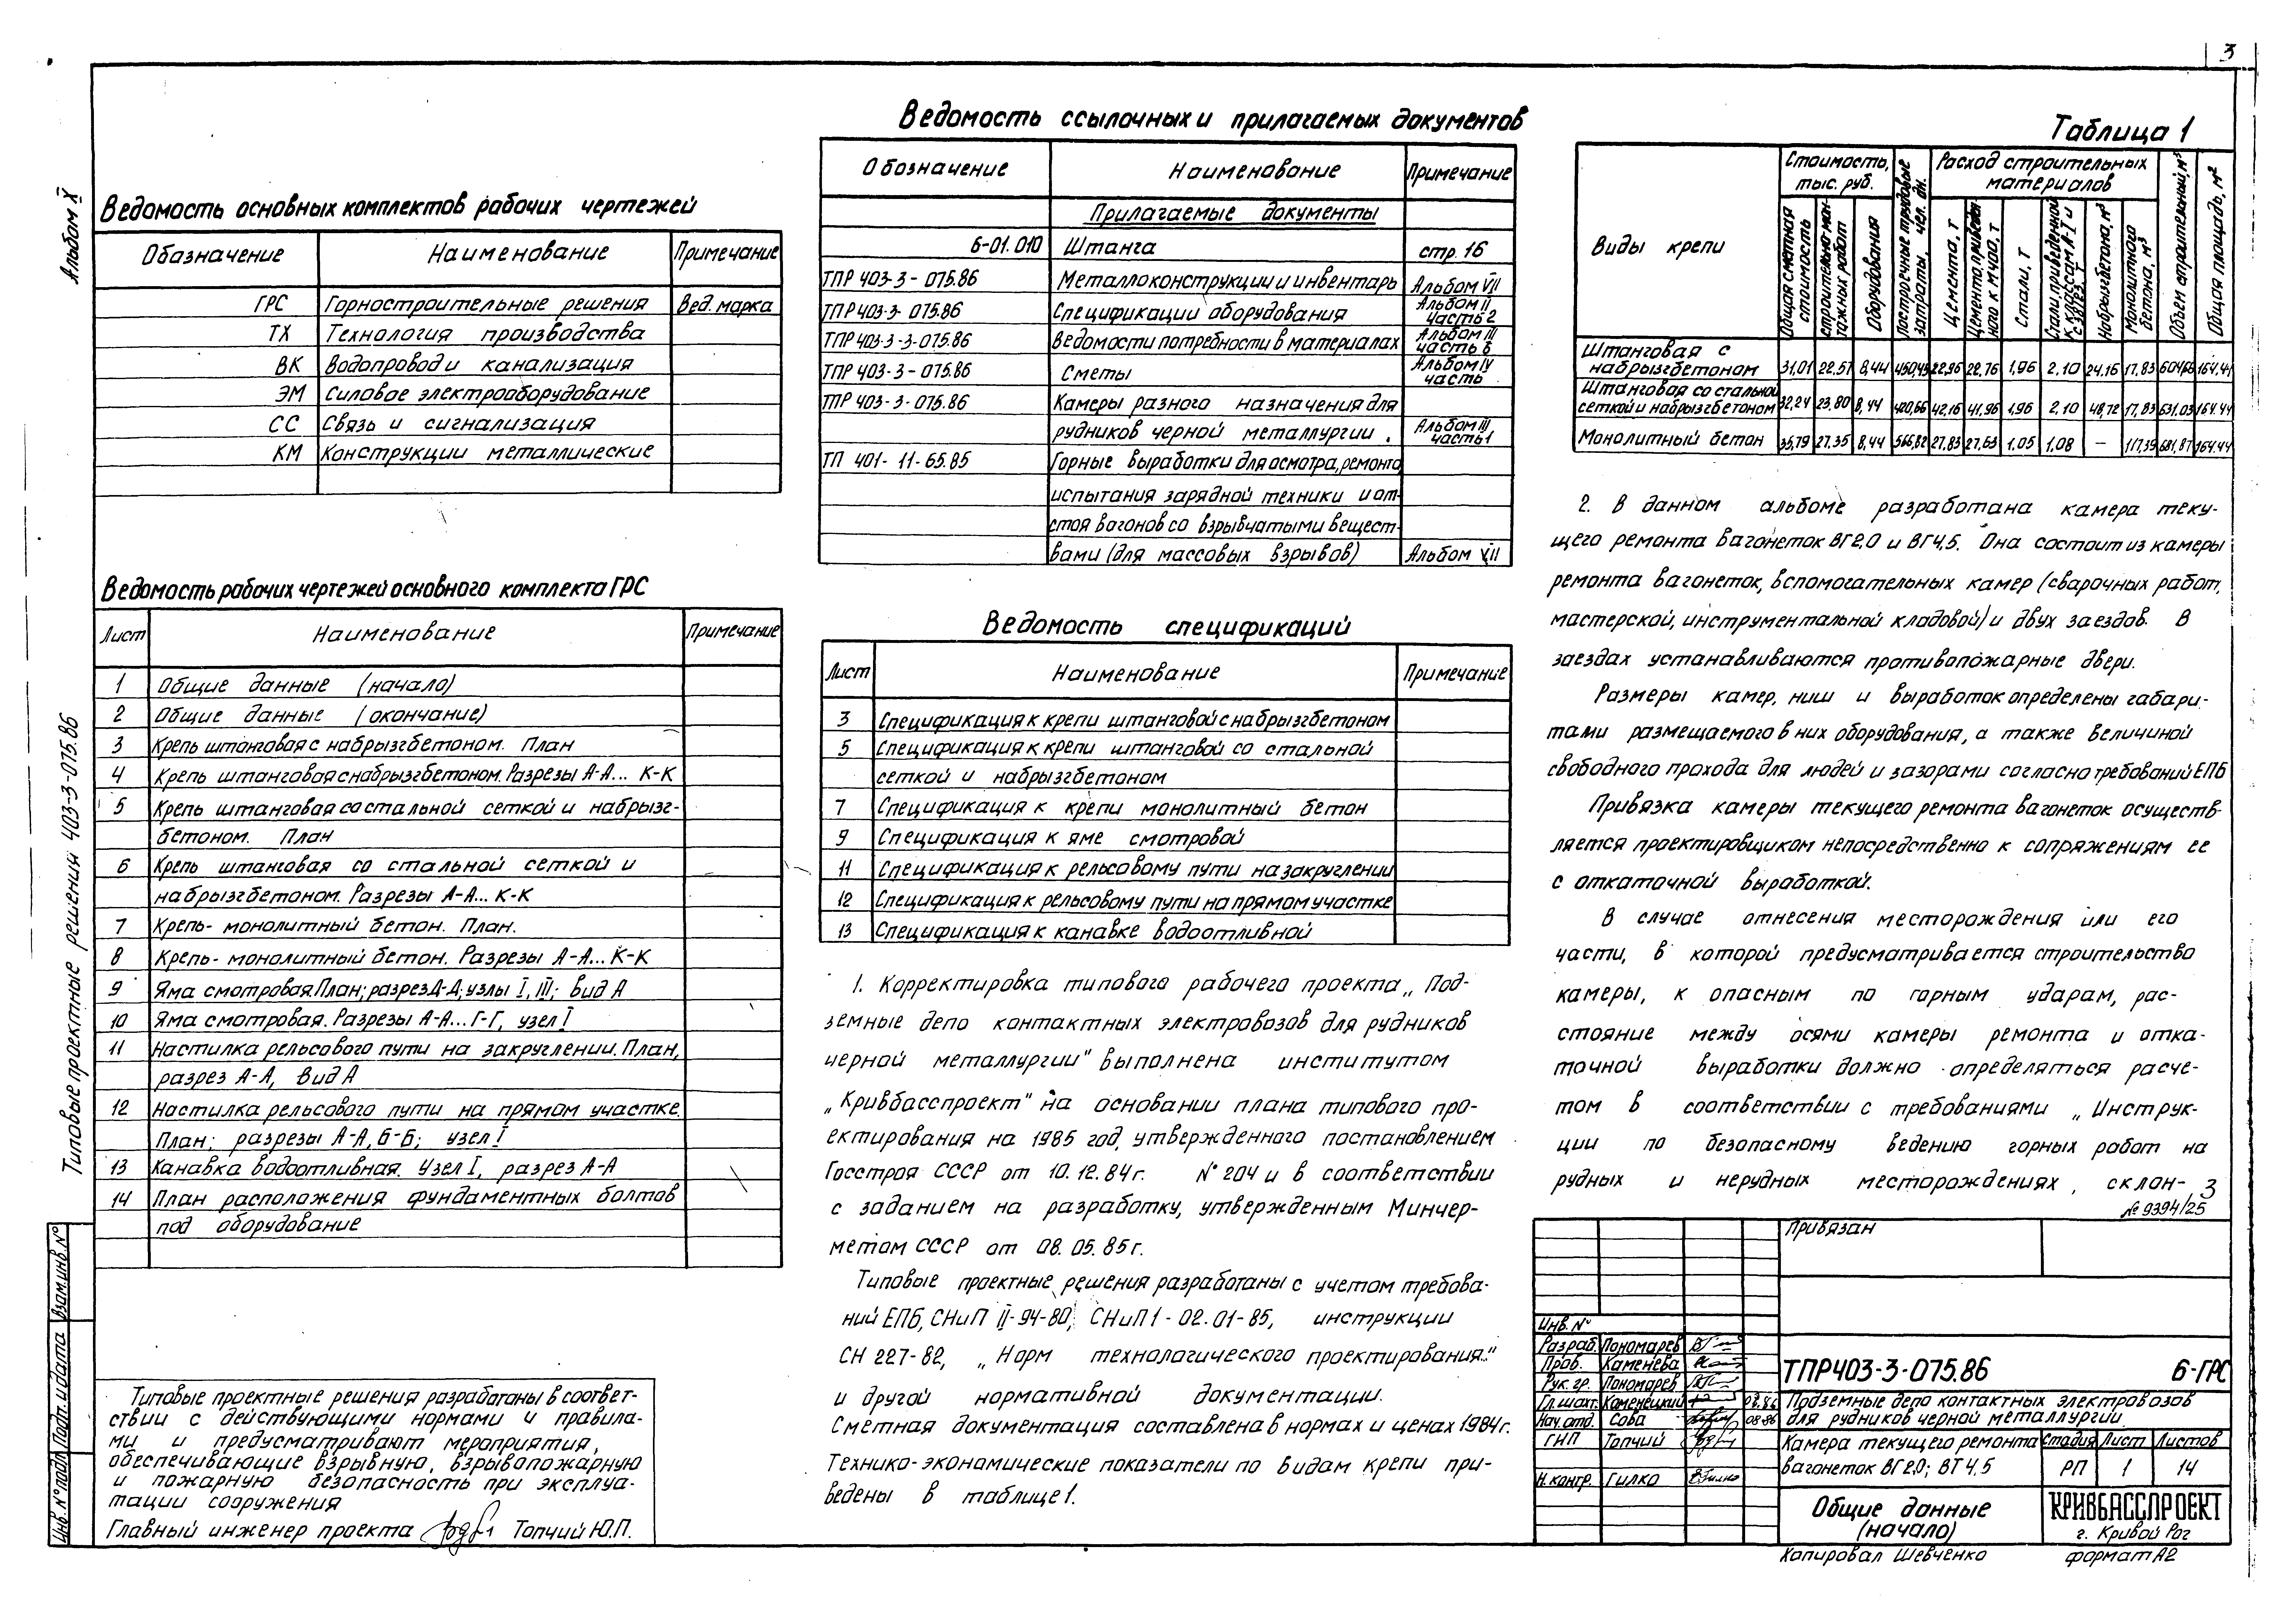 3
Альбом X
Типовые проектные решения 403-3-075.86
Ведомость основных комплектов рабочих чертежей
Обозначение Наименование Примечание
ГРС Горностроительные решения Вед. марка
ТХ Технология производства
ВК Водопровод и канализация
ЭМ Силовое электрооборудование
СС Связь и сигнализация
КМ Конструкции металлические
Ведомость рабочих чертежей основного комплекта ГРС
Лист Наименование Примечание
1 Общие данные (начало)
2 Общие данные (окончание)
3 Крепь штанговая с набрызгбетоном. План
4 Крепь штанговая с набрызгбетоном. Разрезы А-А... К-К
5 Крепь штанговая со стальной сеткой и набрызг-
бетоном. План
6 Крепь штанговая со стальной сеткой и
набрызгбетоном. Разрезы А-А... К-К
7 Крепь- монолитный бетон. План.
8 Крепь- монолитный бетон. Разрезы А-А... К-К
9 Яма смотровая. План; разрез Д-Д; узлы I, III; вид А
10 Яма смотровая. Разрезы А-А... Г-Г, узел I
11 Настилка рельсового пути на закруглении. План,
разрез А-А, вид А
12 Настилка рельсового пути на прямом участке.
План; разрезы А-А, Б-Б; узел I
13 Канавка водоотливная. Узел I, разрез А-А
14 План расположения фундаментных болтов
под оборудование
Типовые проектные решения разработаны в соответ-
ствии с действующими нормами и правила-
ми и предусматривают мероприятия,
обеспечивающие взрывную, взрывопожарную
и пожарную безопасность при эксплуа-
тации сооружения
Главный инженер проекта Топчий Ю.П.
Инв. № подл. Подп. и дата Взам. инв. №
Ведомость ссылочных и прилагаемых документов
Обозначение Наименование Примечание
Прилагаемые документы
6-01.010 Штанга стр. 16
ТПР 403-3-075.86 Металлоконструкции и инвентарь Альбом VII
ТПР 403-3-075.86 Спецификации оборудования Альбом II часть 2
ТПР 403-3-3-075.86 Ведомости потребности в материалах Альбом III часть 6
ТПР 403-3-075.86 Сметы Альбом IV часть
ТПР 403-3-075.86 Камеры разного назначения для
рудников черной металлургии. Альбом III часть 1
ТП 401-11-65.85 Горные выработки для осмотра, ремонта
испытания зарядной техники и от-
стоя вагонов со взрывчатыми вещест-
вами (для массовых взрывов) Альбом VII
Ведомость спецификаций
Лист Наименование Примечание
3 Спецификация к крепи штанговой с набрызгбетоном
5 Спецификация к крепи штанговой со стальной
сеткой и набрызгбетоном
7 Спецификация к крепи монолитный бетон
9 Спецификация к яме смотровой
11 Спецификация к рельсовому пути на закруглении
12 Спецификация к рельсовому пути на прямом участке
13 Спецификация к канавке водоотливной
1. Корректировка типового рабочего проекта „Под-
земные депо контактных электровозов для рудников
черной металлургии" выполнена институтом
„Кривбасспроект" на основании плана типового про-
ектирования на 1985 год, утвержденного постановлением
Госстроя СССР от 10.12.84г. № 204 и в соответствии
с заданием на разработку, утвержденным Минчер-
метом СССР от 08.05.85г.
Типовые проектные решения разработаны с учетом требова-
ний ЕПБ, СНиП II-94-80, СНиП 1-02.01-85, инструкции
СН 227-82, „Норм технологического проектирования."
и другой нормативной документации.
Сметная документация составлена в нормах и ценах 1984г.
Технико-экономические показатели по видам крепи при-
ведены в таблице 1.
Таблица 1
Виды крепи
Стоимость, тыс. руб.
Общая сметная стоимость
строительно-мон-тажных работ
Оборудования
Построечные трудовые затраты, чел. дн.
Расход строительных материалов
Цемента, т
Цемента, приведен-ного к М400, т
Стали, т
Стали приведенной к классам А-I и
Набрызгбетона, м³
Монолитного бетона, м³
Объем строительный, м³
Общая площадь, м²
Штанговая с
набрызгбетоном 31,01 22.57 8,44 450,43 22,96 22.76 1,96 2.10 24.16 17.83 164.44
Штанговая со стальной
сеткой и набрызгбетоном 32,24 23.80 8,44 42,16 41,96 1,96 2,10 48,72 17.83 631.03 164.44
Монолитный бетон 35,79 27.35 8,44 566,82 27,83 27,63 1.05 1,08 — 117.39 681,87 164.44
2. В данном альбоме разработана камера теку-
щего ремонта вагонеток ВГ2,0 и ВГ4,5. Она состоит из камеры
ремонта вагонеток, вспомогательных камер (сварочных работ,
мастерской, инструментальной кладовой) и двух заездов. В
заездах устанавливаются противопожарные двери.
Размеры камер, ниш и выработок определены габари-
тами размещаемого в них оборудования, а также величиной
свободного прохода для людей и зазорами согласно требований ЕПБ
Привязка камеры текущего ремонта вагонеток осуществ-
ляется проектировщиком непосредственно к сопряжениям ее
с откаточной выработкой.
В случае отнесения месторождения или его
части, в которой предусматривается строительство
камеры, к опасным по горным ударам, рас-
стояние между осями камеры ремонта и отка-
точной выработки должно определяться расче-
том в соответствии с требованиями „Инструк-
ции по безопасному ведению горных работ на
рудных и нерудных месторождениях, склон-
3
№ 9394/25
Привязан
Инв. №
Разраб. Пономарев
Пров. Каменева
Рук. гр. Пономарев
Гл. шахт. Каменецкий 08.86
Нач. отд. Сова 08.86
ГНП Топчий
Н. контр. Гилко
ТПР403-3-075.86 6-ГРС
Подземные депо контактных электровозов
для рудников черной металлургии.
Камера текущего ремонта
вагонеток ВГ 2.0; ВТ 4,5
Стадия Лист Листов
РП 1 14
Общие данные
(начало)
КРИВБАССПРОЕКТ
г. Кривой Рог
Копировал Шевченко формат А2